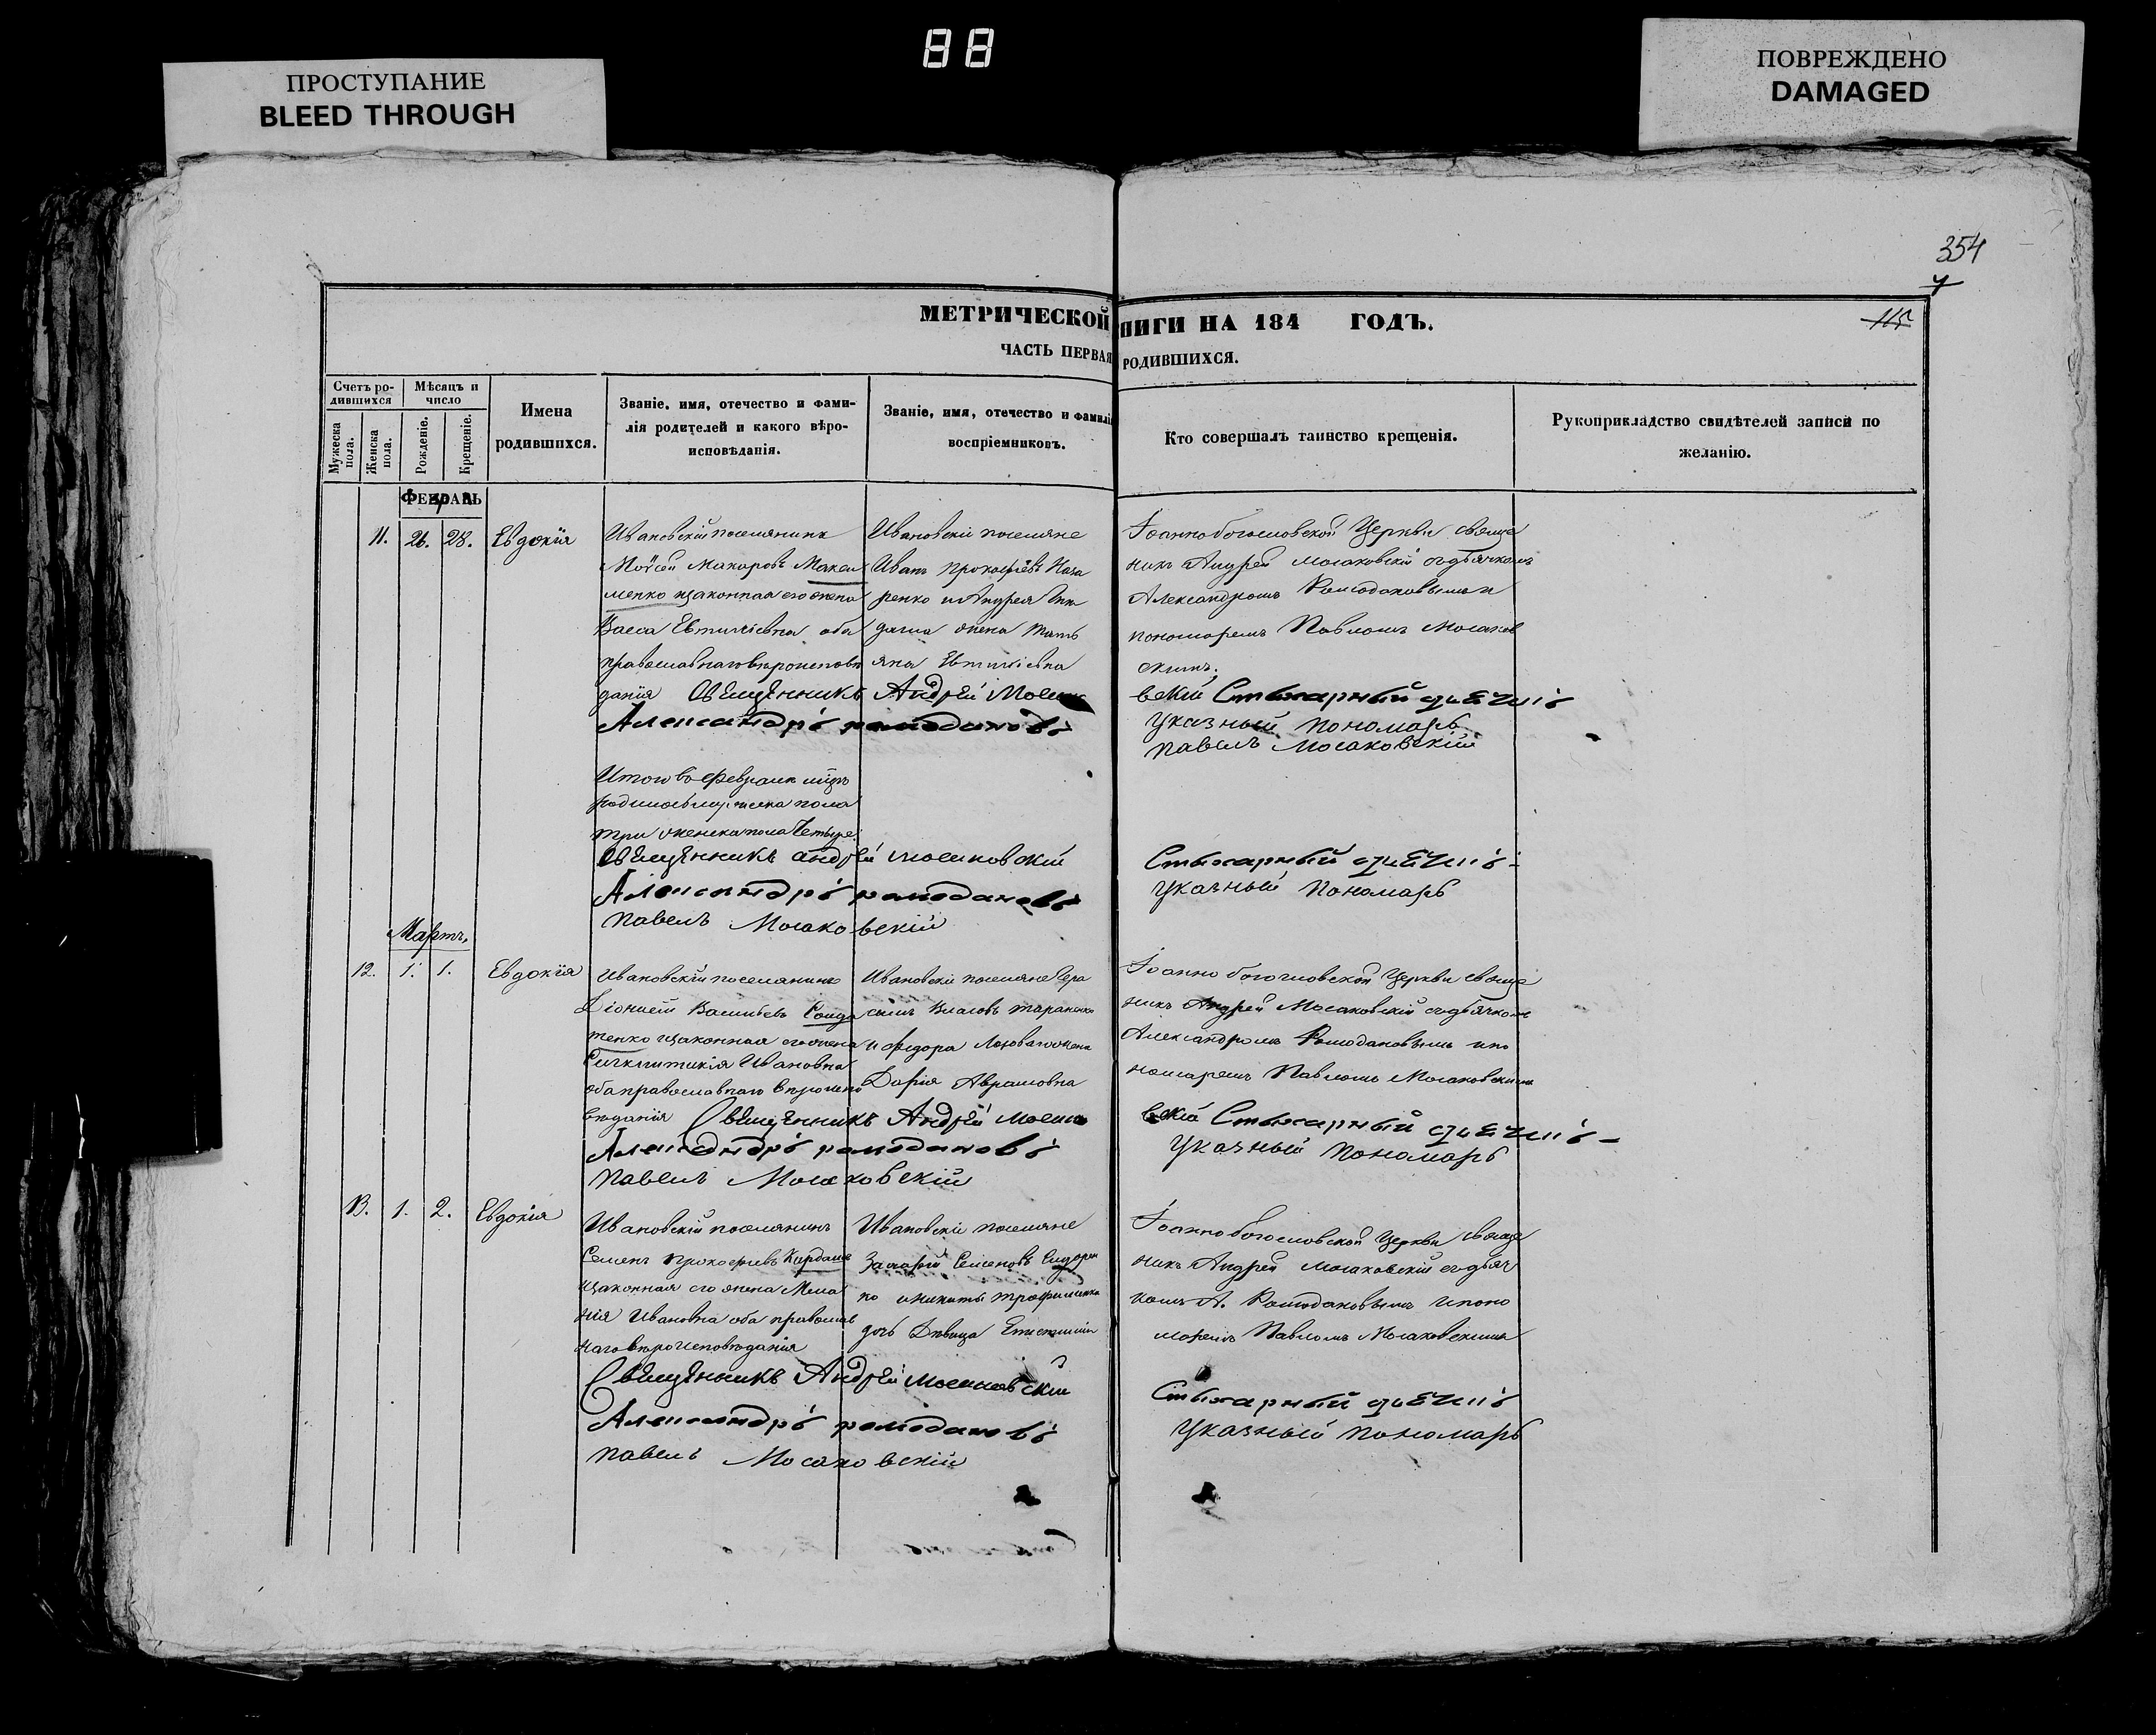 88
ПРОСТУПАНИЕ
BLEED THROUGH
ПОВРЕЖДЕНО
DAMAGED
354
МЕТРИЧЕСКОЙ
НИГИ НА 184 ГОДЪ.
115
ЧАСТЬ ПЕРВАЯ
РОДИВШИХСЯ.
Счетъ ро-
дившихся
Мужеска
пола.
Женска
пола.
Мѣсяцъ и
число
Рожденіе.
Крещеніе.
Имена
родившихся.
Званіе, имя, отечество и фами-
лія родителей и какого вѣро-
исповѣданія.
Званіе, имя, отечество и фамилія
воспріемниковъ.
Кто совершалъ таинство крещенія.
Рукоприкладство свидѣтелей записи по
желанію.
11. 26. 28. Евдокія
Ивановскій поселянинъ
Моѵсей Макаровъ
менко изаконная его жена
Васса Евтихіевна оба
православнаго вѣроисповѣ
данія Священникъ
Александръ
Ивановскіе поселяне
Иванъ Прокофіевъ Наза
ренко и Андрея
жена Тать
яна Евтихіевна
Андрей
ромодановъ
Іоанно богословской Церкви священ
никъ Андрей Мосаковскій содьячкомъ
Александромъ Ромодановымъ и
пономаремъ Павломъ Мосаков
скимъ.
вскій Стихарный дьячекъ
Указный Пономарь
Павелъ Мосаковскій
Итого въ Февралѣ мцѣ
родилось мужеска пола
три женска пола Четыре:
Священникъ Андрей Мосаковскій
Александръ ромодановъ
Павелъ Мосаковскій
Стихарный дьячекъ
Указный Пономарь
Мартъ.
12. 1. 1. Евдокія
Ивановскій поселянинъ
Діонисій Васильевъ Солда
тенко изаконная его жена
Синклитикія Ивановна
оба православнаго вѣроиспо
вѣданія Священникъ
Александръ
Павелъ
Ивановскіе поселяне Гера
симъ Власовъ Тараненко
и Федора жена
Дарія Аврамовна
Андрей
ромодановъ
Мосаковскій
Іоанно богословской Церкви священ
никъ Андрей Мосаковскій содьячкомъ
Александромъ Ромодановымъ ипо
номаремъ Павломъ Мосаковскимъ
вскій Стихарный дьячекъ
Указный Пономарь
13. 1. 2. Евдокія
Ивановскій поселянинъ
Семенъ Прокофіевъ
изаконная его жена Мела
нія Ивановна оба православ
наго вѣроисповѣданія
Ивановскіе поселяне
Захарій Семеновъ Сидорен
ко иникиты
дочь Дѣвица
Священникъ Андрей Мосаковскій
Александръ ромодановъ
Павелъ Мосаковскій
Іоанно богословской Церкви священ
никъ Андрей Мосаковскій содьяч
комъ А. Ромодановымъ ипоно
маремъ Павломъ Мосаковскимъ
Стихарный дьячекъ
Указный Пономарь